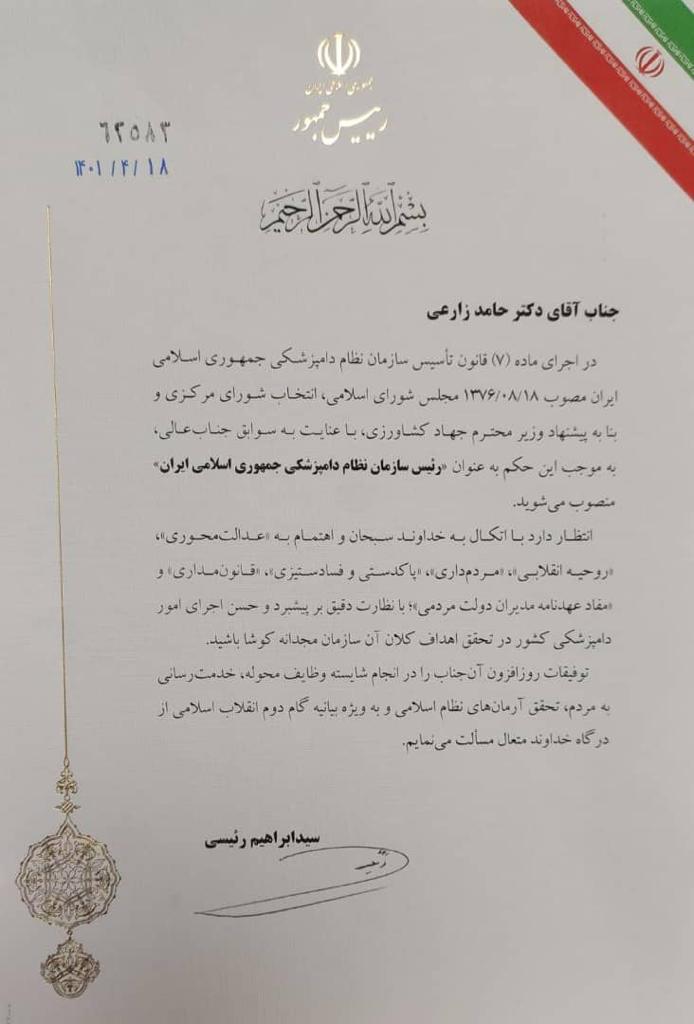 جمهوری اسلامی ایران
رییس جمهور
۶۲۵۸۳
۱۴۰۱/۴/۱۸
بسم الله الرحمن الرحیم
جناب آقای دکتر حامد زارعی
در اجرای ماده (۷) قانون تأسیس سازمان نظام دامپزشکی جمهوری اسلامی
ایران مصوب ۱۳۷۶/۰۸/۱۸ مجلس شورای اسلامی، انتخاب شورای مرکزی و
بنا به پیشنهاد وزیر محترم جهاد کشاورزی، با عنایت به سوابق جناب‌عالی،
به موجب این حکم به عنوان «رئیس سازمان نظام دامپزشکی جمهوری اسلامی ایران»
منصوب می‌شوید.
انتظار دارد با اتکال به خداوند سبحان و اهتمام به «عدالت‌محوری»،
«روحیه انقلابی»، «مردم‌داری»، «پاکدستی و فسادستیزی»، «قانون‌مداری» و
«مفاد عهدنامه مدیران دولت مردمی»؛ با نظارت دقیق بر پیشبرد و حسن اجرای امور
دامپزشکی کشور در تحقق اهداف کلان آن سازمان مجدانه کوشا باشید.
توفیقات روزافزون آن‌جناب را در انجام شایسته وظایف محوله، خدمت‌رسانی
به مردم، تحقق آرمان‌های نظام اسلامی و به ویژه بیانیه گام دوم انقلاب اسلامی از
درگاه خداوند متعال مسألت می‌نمایم.
سیدابراهیم رئیسی